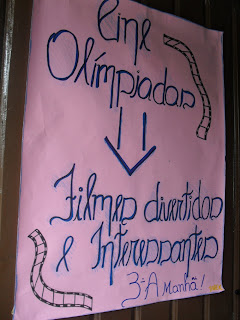 Cine
Olímpiadas
Filmes divertidos
e Interessantes
3ª A Manhã!